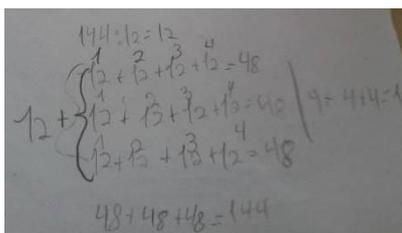 144:12=12
1 2 3 4
12+12+12+12=48
1 2 3 4
12+ 12+12+12=48
12+ 4+4+4=1
1 2 3 4
12+12+12+12=48
48+48+48=144